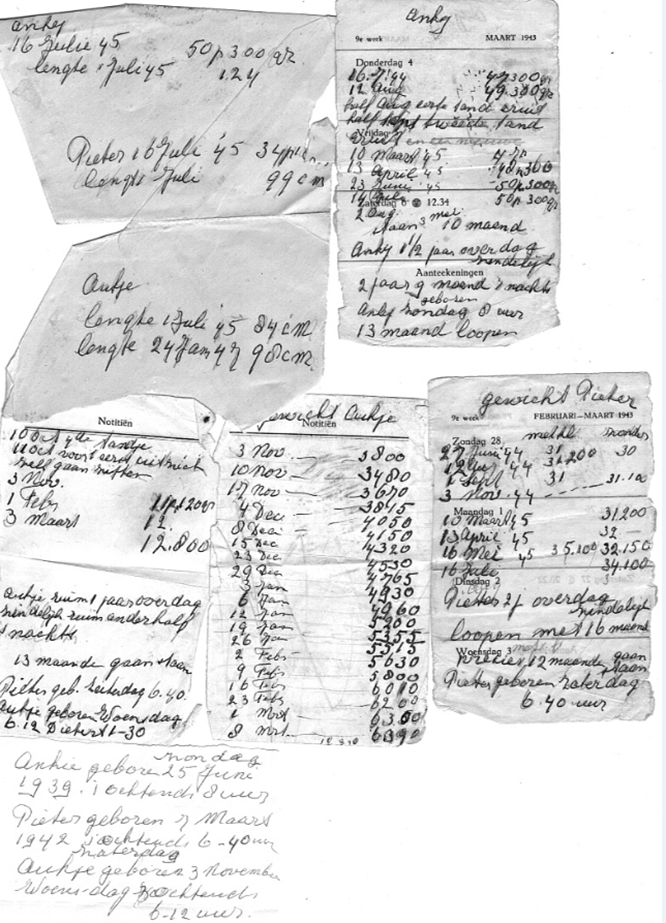 Anky
16 Julie 45 50 p 300 gr
lengte 1 Juli 45 1.24
Pieter 16 Juli '45 34 p
lengte 1 Juli 99 cm
Anky
9e week MAART 1943
Donderdag 4
16-7-'44 47.300 gr
12 Aug 49.300 gr
half Aug eerste tand eruit
half tweede tand
Vrijdag
eruit en een nieuwe
10 Maart 45
13 April 45 48 p 300
23 Junie '45 50 p 300 gr
14 50 p 300 gr
Zaterdag 6 12.34
2 Aug
staan 3 mei
10 maend
Anky 1 1/2 jaar overdag
zindelijk
Aanteekeningen
2 jaar 9 maend 's nachts
geboren
Anky zondag 8 uur
13 maand loopen
Aukje
lengte 1 Juli '45 84 cm
lengte 24 Jan 47 98 cm.
Notitiën
10 Oct 4de tandje
11 Oct voort eerst uit
zelf gaan zitten
3 Nov.
1 Febr 11 p 1200
3 Maart 12.
12.800
Aukje ruim 1 jaar overdag
zindelijk ruim anderhalf
's nachts
13 maande gaan staan
Pieter geb. Zaterdag 6.40.
Aukje geboren Woensdag
6.12
gewicht Aukje
Notitiën
3 Nov. 3800
10 Nov 3480
17 Nov 3670
3815
4 Dec 4050
8 Dec 4150
15 Dec 4320
23 Dec 4530
29 Dec 4765
3 Jan 4930
6 Jan 4960
12 Jan 5200
19 Jan 5355
26 Jan 5515
2 Febr 5630
9 Febr 5800
16 Febr 6010
23 Febr 6200
1 Mrt 6300
8 Mrt 6390
gewicht Pieter
9e week FEBRUARI-MAART 1943
Zondag 28 met kl zonder
27 Juni '44 31 30
12 Aug '44 31.200
1 Sept 31 31.100
3 Nov '44
Maandag 1 31200
10 Maart 45
13 April 45 32
16 Mei 45 35.100 32.150
16 Julie 34.100
Dinsdag 2
Pieter 2 j overdag
zindelijk
loopen met 16 maand
Woensdag 3
precies 12 maande gaan
staan
Pieter geboren zaterdag
6.40 uur
Zondag
Ankie geboren 25 Juni
1939. 's ochtends 8 uur
Pieter geboren 7 Maart
1942 's ochtends 6-40 uur
zaterdag
Aukje geboren 3 November
Woensdag 's ochtends
6-12 uur.